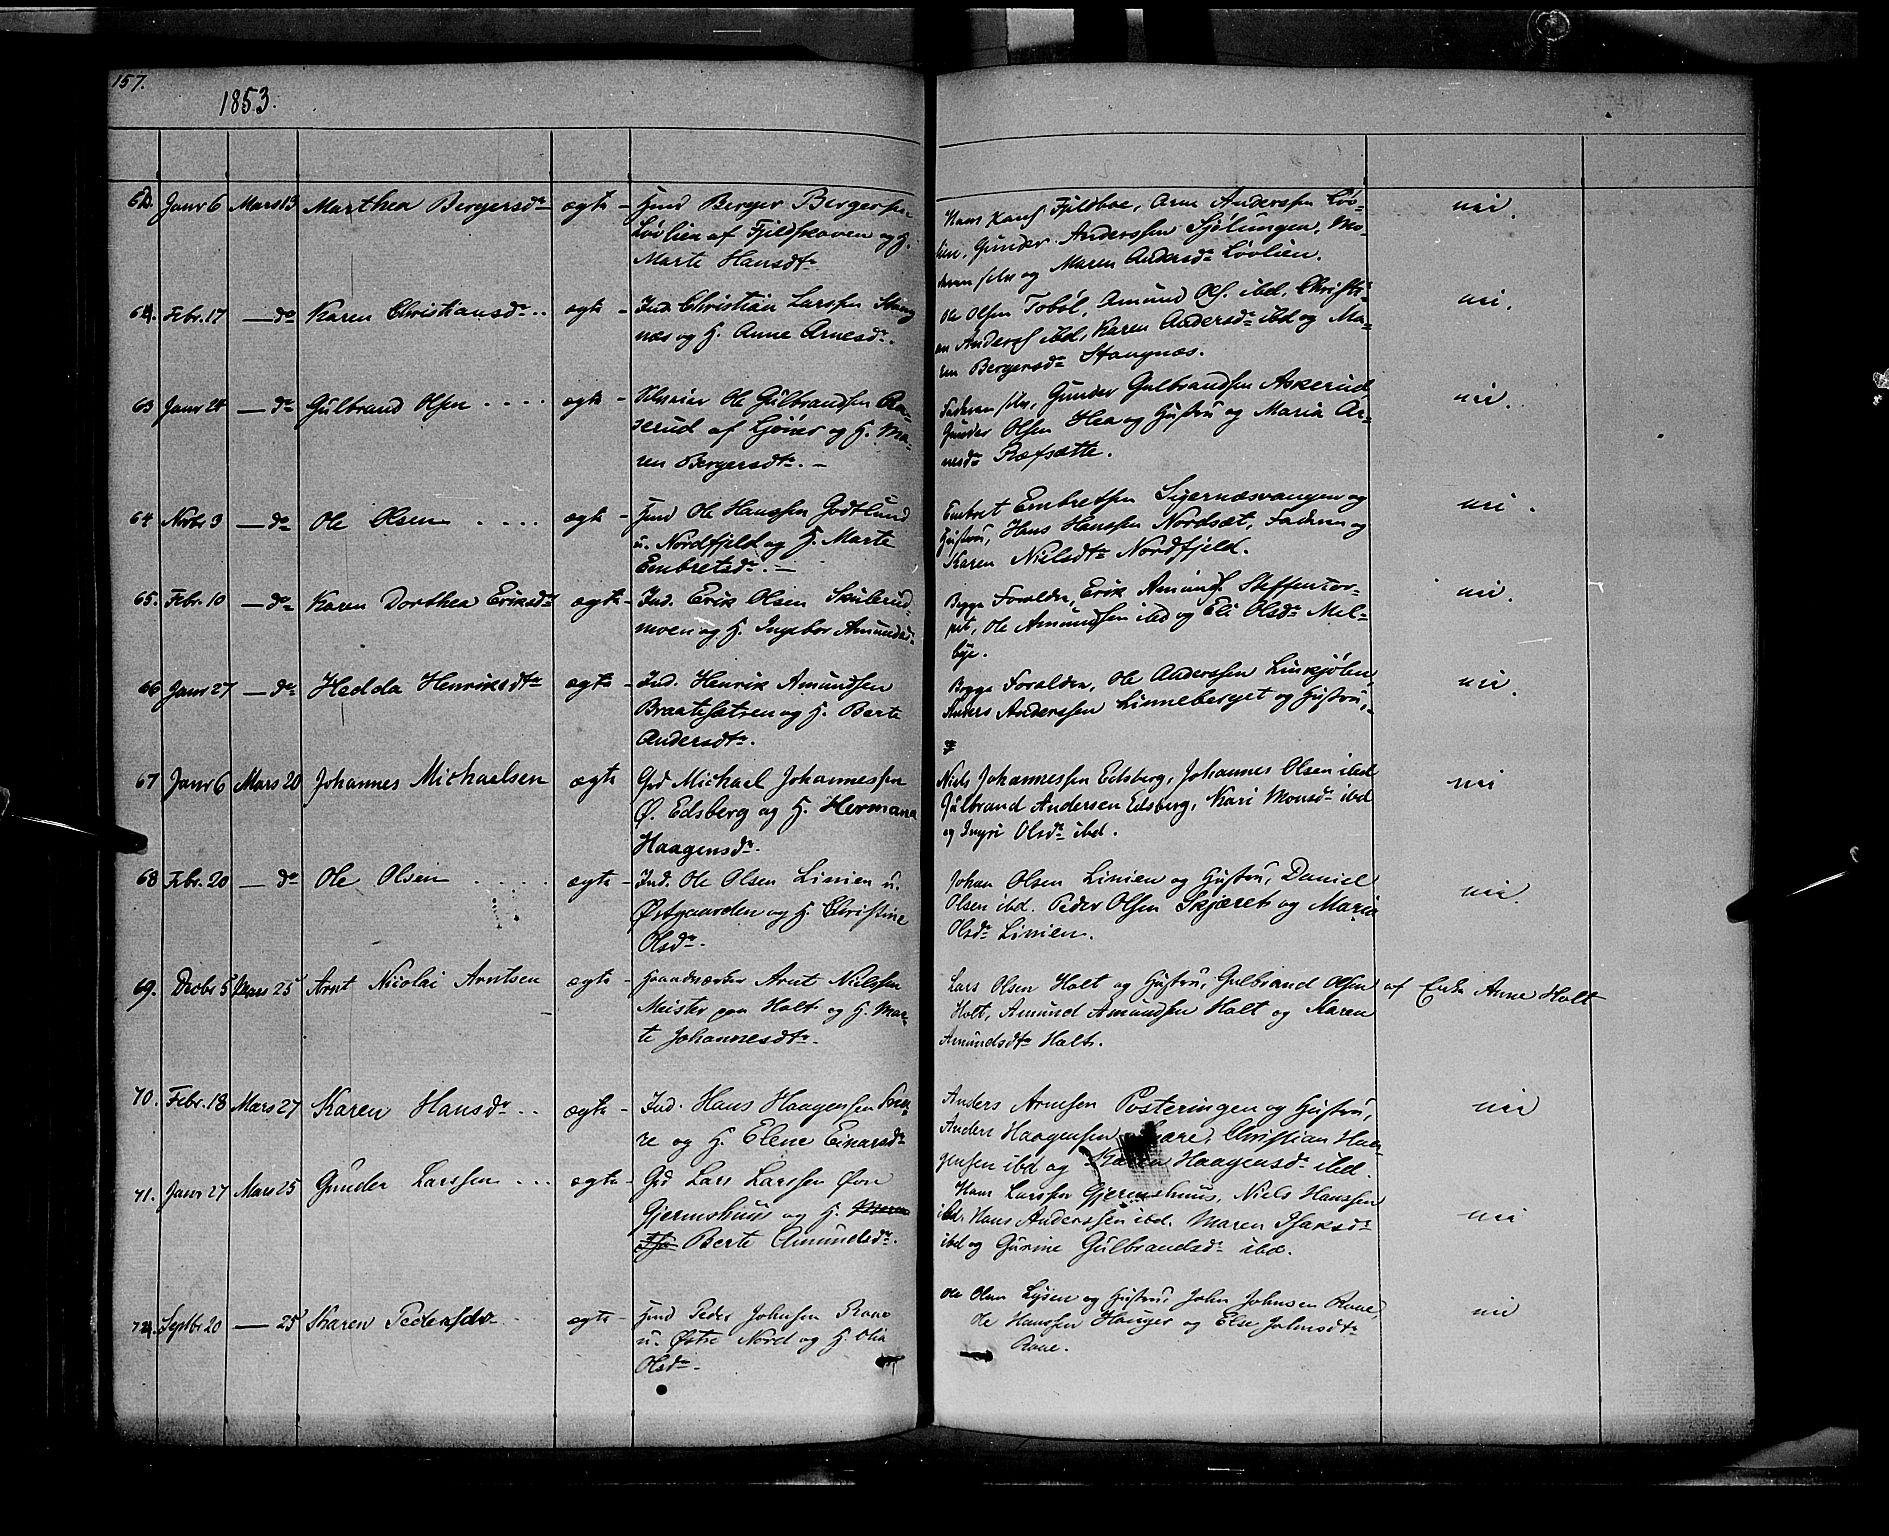 157.
1853.
Janr 6 Mars 13 Marthea Bergersdr ægte Hmd Berger Bergersen
Løvlien af Fjeldskoven og H.
Marte Hansdtr
Hans Fjeldboe, Arne Anderssen Løv-
lien, Gunder Anderssen Sjølungen, Mo-
deren selv og Maren Andersdr Løvlien.
nei.
Febr. 17 — do Karen Christiansdr ægte Ind Christian Larssen Stang
næs og H. Anne Arnesdr.
Ole Olsen Tobøl, Amund Ols. ibd, Christi-
an Anderss ibd, Karen Andersdr ibd og Ma-
ren Bergersdr Stangnæs.
nei.
63 Janr — do Gulbrand Olsen ægte Selveier Ole Gulbrandsen
af og H. Ma-
ren Bergersdtr.
Faderen selv, Gunder Gulbrandsen Askerud,
Gunder Olsen Hea og Hustru og Maria Ar-
nesdr Refsætte.
nei.
64 Novbr 9 — do Ole Olsen ægte Hmd Ole Hanssen Godtlund
u. Nordfjeld og H. Marte
Embretsdr.
Embret Embretsen Sigernæsvangen og
Hustru, Hans Hanssen Nordsæt, Faderen og
Karen Nielsdtr Nordfjeld.
nei.
65. Febr. 10 — do Karen Dorthea Eriksdr ægte Ind. Erik Olsen Skulerud-
moen og H. Ingebor Amundsd
Begge Foraldre, Erik Amunds Steffentor-
pet, Ole Amundsen ibd og Eli Olsdr Mel-
bye.
nei.
66 Janr 27 — do Hedda Henriksdtr ægte Ind. Henrik Amundsen
Braatesætren og H. Berte
Andersdtr.
Begge Foraldre, Ole Anderssen Linkjølen,
Anders Anderssen Linneberget og Hustru,
nei.
67 Janr 6 Mars 20 Johannes Michaelsen ægte Grd Michael Johannessen
Ø. Edsberg og H. Hermana
Haagensdr.
Niels Johannessen Edsberg, Johannes Olsen ibd
Gulbrand Andersen Edsberg, Kari Monsdr ibd
og Ingri Olsdr ibd.
nei
68 Febr. 20 — do Ole Olsen ægte Ind. Ole Olsen Linien u.
Østgaarden og H. Christine
Olsdr.
Johan Olsen Linien og Hustru, Daniel
Olsen ibd. Peder Olsen Skjæret og Maria
Olsdr Linien.
nei.
69. Decbr 5 Mars 25 Arnt Nicolai Arntsen ægte Haandværker Arnt Nielssen
Meister paa Holt og H. Mar-
te Johannesdtr.
Lars Olsen Holt og Hustru, Gulbrand Olsen
Holt, Amund Amundsen Holt og Karen
Amundsdtr Holt.
af Enke Anne Holt
70. Febr. 18 Mars 27 Karen Hansdr ægte Ind. Hans Haagensen
og H. Elene Einarsdr
Anders Arnesen Posteringen og Hustru,
Anders Haagensen Christian Haa-
gensen ibd og Karen Haagensdr ibd.
nei
71. Janr 27 Mars 25 Gunder Larssen ægte Grd Lars Larssen Øvre
Gjermshuus og H.
Berte Amundsdr.
Hans Larssen Gjermshuus, Niels Hanssen
ibd, Hans Anderssen ibd. Maren Isaksdr
ibd og Gurine Gulbrandsdr ibd.
nei
Septbr 20 — 25 Karen Pedersdr ægte Hmd Peder Johnsen Raae
u. Østre Nord og H. Olia
Olsdr
Ole Olsen Lysen og Hustru, John Johnsen Raae,
Ole Hanssen Hauger og Else Johnsdtr
Raae.
nei